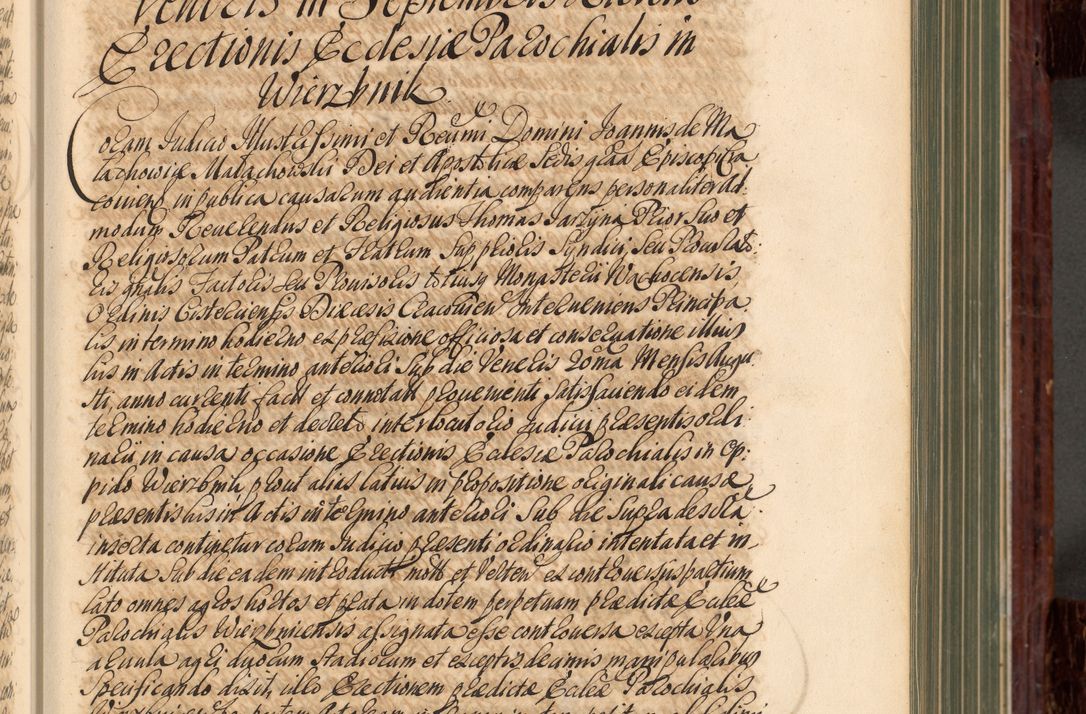 Veneris in Septembris
Erectionis Ecclesiæ Parochialis in
Wierzbnik
Coram Judicio Illustrissimi et Reu͠mi Domini Joannis de Ma
łachowice Małachowski Dei et Apostolicæ Sedis gr͠aa Episcopi Cra
couien͠ in publica causarum audientia comparens personaliter Ad
modum Reuerendus et Religiosus Thomas Jarzyna Prior suo et
Religiosorum Patrum et Fratrum Supprioris Syndici, seu Procurato
ris gn͠alis Factoris seu Prouisoris totiusq Monasterii Wąchocensis,
Ordinis Cisterciensis Diæcesis Cracouien Interueniens Principa
lis in termino hodierno ex præfixione officiosa et conseruatione illius
huis in Actis in termino anteriori sub die Veneris 20ma Mensis Augu
sti, anno currenti fact et connotati prouenienti satisfaciendo eidem
termino hodierno et decreto interlocutorio Judicii præsentis ordi
narii in causa occasione Erectionis Ecclesiæ Parochialis in Op
pido Wierzbnik prout alias latius in propositione originali causæ
præsentis his in Actis in termino anteriori sub die supra descr͠a
inserta continetur coram Judicio præsenti ordinario intentata et in
stituta sub die eadem introduct mott et Vertent ex controuersijs partium
lato omnes agros hortos et prata in dotem perpetuam prædictæ Eccl͠æ
Parochialis Wierzbnicensis assignata esse controuersa excepta Vna
areuula agri duorum stadiorum et exceptis decimis manipularibus
specificando dixit, illo Erectionem prædictæ Eccl͠æ Parochialis